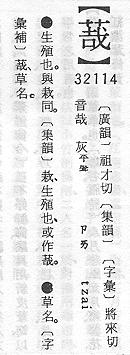 【𦳦】
32114
〔廣韻〕祖才切〔集韻〕〔字彙〕將來切
音哉 灰平聲 ㄗㄞ tzai
❶生殖也。與栽同。〔集韻〕栽、生殖也、或作𦳦。❷草名。〔字
彙補〕𦳦、草名。